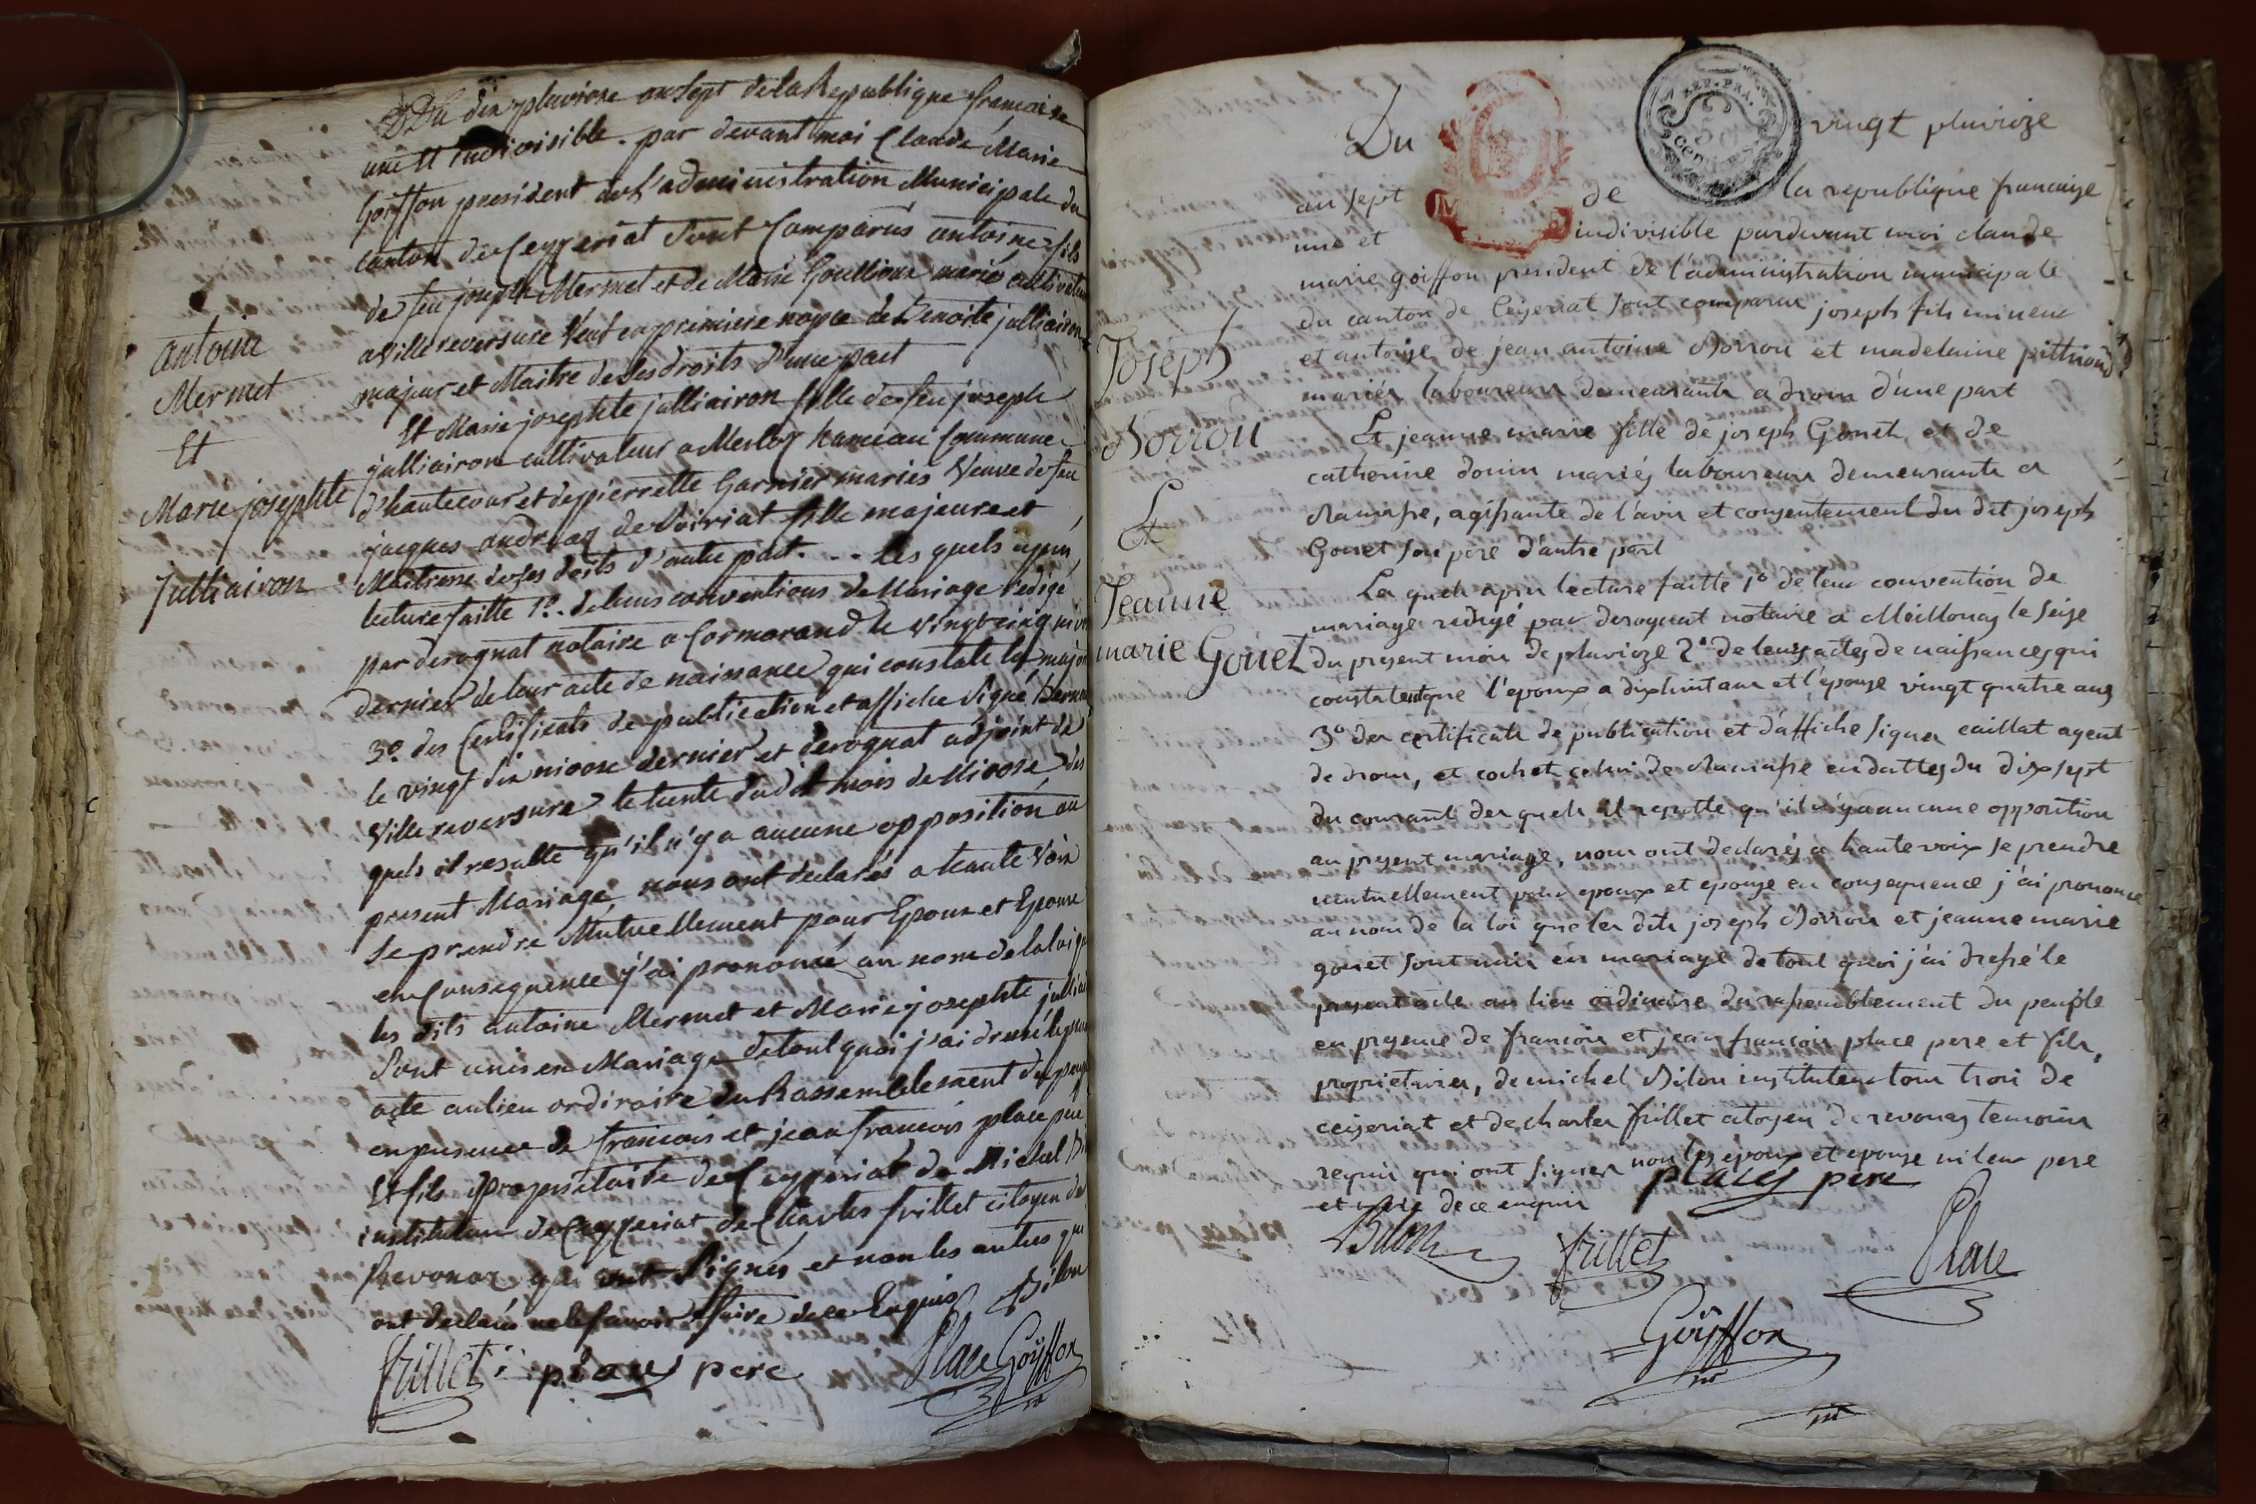 Du dix pluviose an Sept de la Republique francaise
une et indivisible. par devant moi Claude Marie
Goiffon president de l'administration Municipale du
canton de Ceyzeriat sont Comparus antoine fils
de feu joseph Mermet et de Marie Goullioux mariés cultivateur
a Villereversure veuf en premiere nopce de Benoite julliairon
majeur et Maitre de ses droits d'une part
Et Marie josephte julliairon fille de feu joseph
julliairon cultivateur a Merloz hameau Commune
d'hautecour et de pierrette Garnier mariés Veuve de feu
jacques de Soiriat fille majeure et
Maitresse de ses droits d'autre part. - - Les quels apres
lecture faitte 1º. de leurs conventions de Mariage redigé
par derognat notaire a Cormorand le vingt cinq
dernier de leur acte de naissance qui constate la
3º des Certificats de publication et affiche Signé
le vingt dix nivose dernier et derognat adjoint de
Villereversure le trente dudit mois de Nivose des
quels il resulte qu'il n'y a aucune opposition au
present Mariage nous ont déclarés a haute Voix
se prendre Mutuellement pour Epoux et Epouse
en Consequence j'ai prononcé au nom de la loi que
les dits antoine Mermet et Marie josephte
Sont unis en Mariage de tout quoi j'ai dressé le
acte au lieu ordinaire du Rassemblement du
en presence de francois et jean francois place pere
Et fils Propriétaire de Ceyzeriat de Michel
instituteur de Ceyzeriat de Charles frillet citoyen de
Revonaz qui ont Signés et non les autres qui
ont declaré ne le savoir faire de ce Enquis Bilon
frillet places pere Place Goyffon
antoine
Mermet
Et
Marie josephte
Julliairon
REP. FRA.
50
CENT
Du vingt pluvioze
an sept de la republique francaize
une et indivisible pardevant moi claude
marie goiffon president de l'administration municipale
du canton de Ceyzeriat sont comparus joseph fils mineur
et antoise de jean antoine Dorrou et madelaine
mariés laboureurs demeurants a drom d'une part
Et jeanne marie fille de joseph Gouet et de
catherine donin mariés laboureurs demeurants a
Ramasse, agissante de l'avis et consentement du dit joseph
Gouet son pere d'autre part
Les quels apres lecture faitte 1º de leur convention de
mariage redigé par derognat notaire a Meillonas le seize
du present mois de pluvioze 2º de leurs actes de naissances qui
constatent que l'epoux a dixhuit ans et l'épouze vingt quatre ans
3º des certificats de publication et d'affiche signés caillat agent
de drom, et cochet celui de Ramasse en dattes du dix sept
du courant des quels il resulte qu'il n'y a aucune opposition
au present mariage, nous ont declarés a haute voix se prendre
mutuellement pour epoux et epouze en consequence j'ai prononcé
au nom de la loi que les dits joseph Dorrou et jeanne marie
gouet sont unis en mariage de tout quoi j'ai dressé le
present acte au lieu ordinaire du rassemblement du peuple
en presence de francois et jean francois place pere et fils,
proprietaires, de michel Bilon instituteur tous trois de
ceizeriat et de charles frillet citoyen de revonas temoins
requis qui ont signés non les epoux et epouze ni leur pere
et mere de ce enquis places pere
Bilon frillet Place
Goyffon
Joseph
Dorrou
Et
Jeanne
marie Gouet